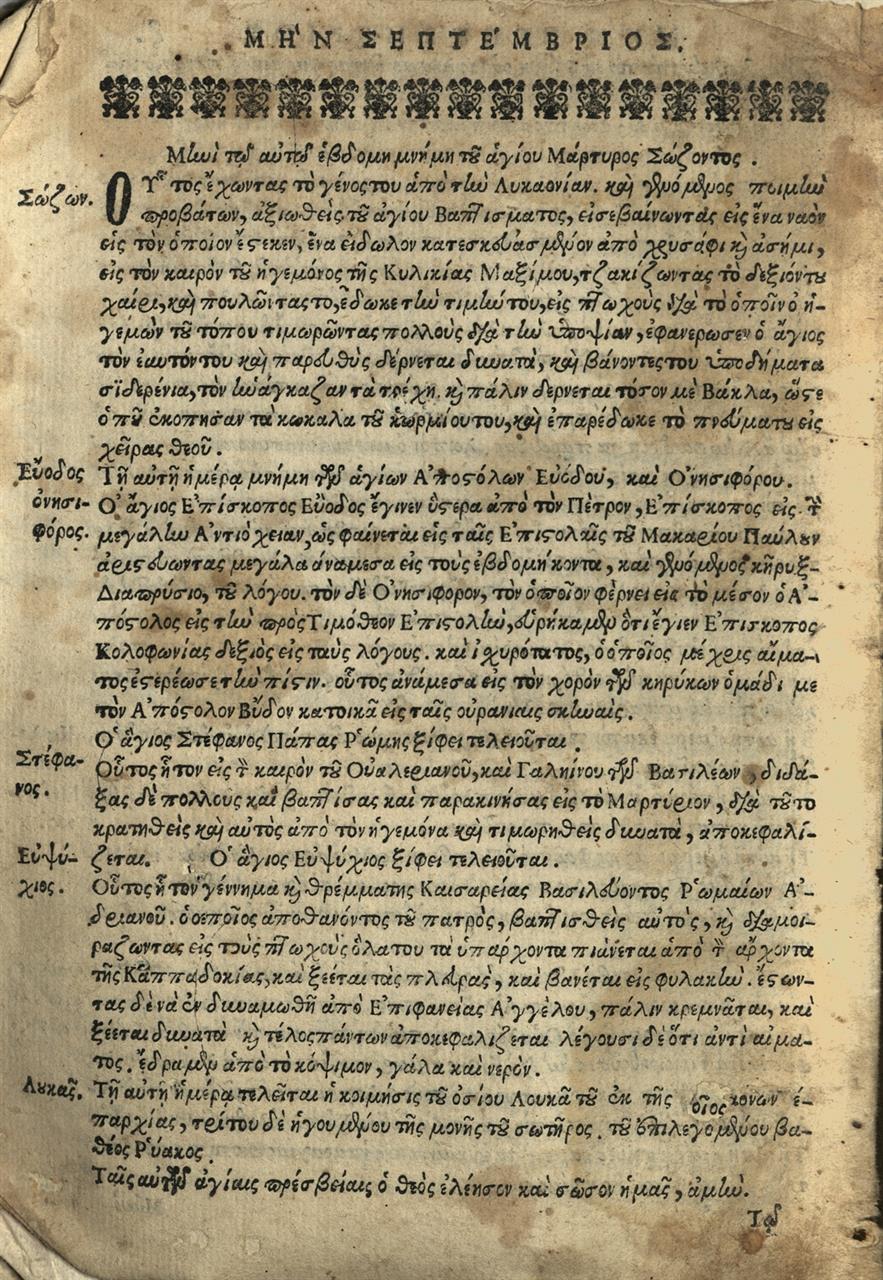 ΜΗ'Ν ΣΕΠΤΕ'ΜΒΡΙΟΣ.
Μηνὶ τῷ αὐτῷ ἑβδομη μνήμη τοῦ ἁγίου Μάρτυρος Σώζοντος.
Σώζων.
ΟΥ῟τος ἔχωντας τὸ γένος του ἀπὸ τὴν Λυκαονίαν. καὶ γενόμενος ποιμὴν
προβάτων, ἀξιωθεὶς τοῦ ἁγίου Βαπτίσματος, εἰσεβαίνωντας εἰς ἕνα ναὸν
εἰς τὸν ὁποῖον ἔστεκεν, ἕνα εἴδωλον κατεσκευασμένον ἀπὸ χρυσάφι καὶ ἀσήμι,
εἰς τὸν καιρὸν τοῦ ἡγεμόνος τῆς Κυλικίας Μαξίμου, τζακίζωντας τὸ δεξιόντου
χαίρι, καὶ πουλῶντας το, ἔδωκε τὴν τιμήν του, εἰς πτωχοὺς διὰ τὸ ὁποῖν ὁ ἡ-
γεμὼν τοῦ τόπου τιμωρῶντας πολλοὺς διὰ τὴν ὑποψίαν, ἐφανερωσεν ὁ ἅγιος
τὸν ἑαυτόν του καὶ παρευθὺς δέρνεται δυνατὰ, καὶ βάνοντες του ὑποδήματα
σϊδερένια, τὸν ἠνάγκαζαν τὰ τρέχη. καὶ πάλιν δερνεται τόσον μὲ Βάκλα, ὥστε
ὁποῦ ἐκοπησαν τὰ κωκαλα τοῦ κορμίου του, καὶ ἐπαρέδωκε τὸ πνεύματου εἰς
χεῖρας θεοῦ.
Εὔοδος
ὀνησι-
φόρος.
Τῇ αὐτῇ ἡμέρᾳ μνήμη τῶν ἁγίων Α'ποστόλων Εὐόδου, καὶ Ο'νησιφόρου.
Ο' ἅγιος Ε'πίσκοπος Εὔοδος ἔγινεν ὕστερα ἀπὸ τὸν Πέτρον, Ε'πίσκοπος εἰς τὴν
μεγάλην Α'ντιόχειαν, ὡς φαίνεται εἰς ταῖς Ε'πιστολαῖς τοῦ Μακαρίου Παύλου
ἀριστεύωντας μεγάλα ἀνάμεσα εἰς τοὺς ἑβδομήκοντα, καὶ γενόμενος κῆρυξ-
Διαπρύσιο, τοῦ λόγου. τὸν δὲ Ο'νησιφορον, τὸν ὁποῖον φέρνει εἰς τὸ μέσον ὁ Α'-
πόστολος εἰς τὴν πρὸς Τιμόθεον Ε'πιστολὴν, εὑρήκαμεν ὅτι ἔγιεν Ε'πισκοπος
Κολοφωνίας δεξιὸς εἰς τοὺς λόγους. καὶ ἰχυρότατος, ὁ ὁποῖος μέχρις αἵμα-
τος ἐστερέωσε τὴν πίστιν. οὗτος ἀνάμεσα εἰς τὸν χορὸν τῶν κηρύκων ὁμάδι με
τὸν Α'πόστολον Εὔδον κατοικᾶ εἰς ταῖς οὐρανίαις σκηναῖς.
Ο' ἅγιος Στέφανος Πάπας Ρ'ώμης ξίφει τελειοῦται.
Στέφα-
νος.
Οὗτος ἦτον εἰς τὸν καιρὸν τοῦ Οὐαλεριανοῦ, καὶ Γαληίνου τῶν Βασιλέων, διδά-
ξας δὲ πολλους καὶ βαπτίσας καὶ παρακινήσας εἰς τὸ Μαρτύριον, διὰ τοῦτο
κρατηθεὶς καὶ αὐτὸς ἀπὸ τὸν ἡγεμόνα καὶ τιμωρηθεὶς δυνατὰ, ἀποκεφαλί-
ζεται. Ο' ἅγιος Εὐψύχιος ξίφει τελειοῦται.
Εὐψύ-
χιος.
Οὗτος ἦτον γέννημα καὶ θρέμμα της Καισαρείας Βασιλεύοντος Ρ'ωμαίων Α'-
δριανοῦ. ὁ ὁποῖος ἀποθανόντος τοῦ πατρὸς, βαπτισθεὶς αὐτὸς, καὶ διαμοι-
ραζωντας εἰς τοὺς πτωχοὺς ὅλα του τὰ ὑπαρχοντα πιάνεται ἀπὸ τὸν ἄρχοντα
τῆς Καππαδοκίας, καὶ ξέεται τὰς πλευρας, καὶ βανέται εἰς φυλακὴν. ἔστων-
τας δὲ νὰ ἐνδυναμωθῇ ἀπὸ Ε'πιφανείας Α'γγέλου, πάλιν κρεμνᾶται, καὶ
ξέεται δυνατὰ καὶ τέλος πάντων ἀποκεφαλιζεται λέγουσι δὲ ὅτι ἀντὶ αἵμα-
τος. ἔδραμεν ἀπὸ τὸ κόψιμον, γάλα καὶ νερὸν.
Λουκᾶς.
Τῇ αὐτῇ ἡμέρᾳ τελεῖται ἡ κοιμήσις τοῦ ὁσίου Λουκᾶ τοῦ ἐκ τῆς κονων ἐ-
παρχίας, τρίτου δὲ ἡγουμένου τῆς μονῆς τοῦ σωτῆρος. τοῦ ἐπιλεγομένου βα-
θέος Ρ'ύακος.
Ταῖς αὐτῶν ἁγίαις πρέσβείαις ὁ θεὸς ἐλέησον καὶ σῶσον ἡμᾶς, ἀμήν.
Τῷ